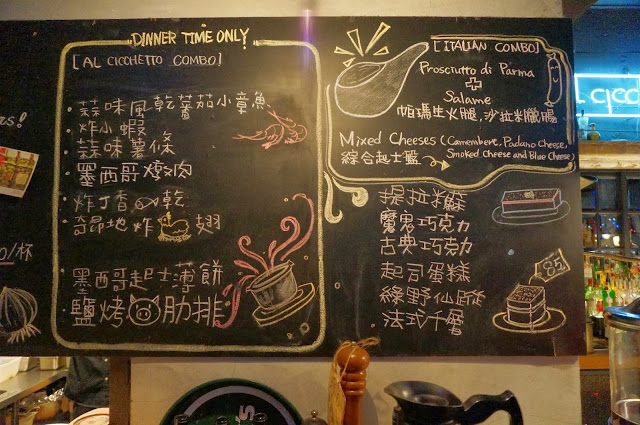 DINNER TIME ONLY
[AL CICCHETTO COMBO]
· 蒜味風乾蕃茄小章魚
· 炸小蝦
· 蒜味薯條
· 墨西哥燉肉
· 炸丁香乾
· 奇昂地炸翅
· 墨西哥起士薄餅
· 鹽烤肋排
/杯
[ITALIAN COMBO]
Prosciutto di Parma
+
Salame
帕瑪生火腿,沙拉米臘腸
Mixed Cheeses (Camembert, Padano Cheese,
綜合起士籃 Smoked Cheese and Blue Cheese)
提拉米蘇
魔鬼巧克力
古典巧克力
起司蛋糕
綠野仙蹤
法式千層
85
CICC